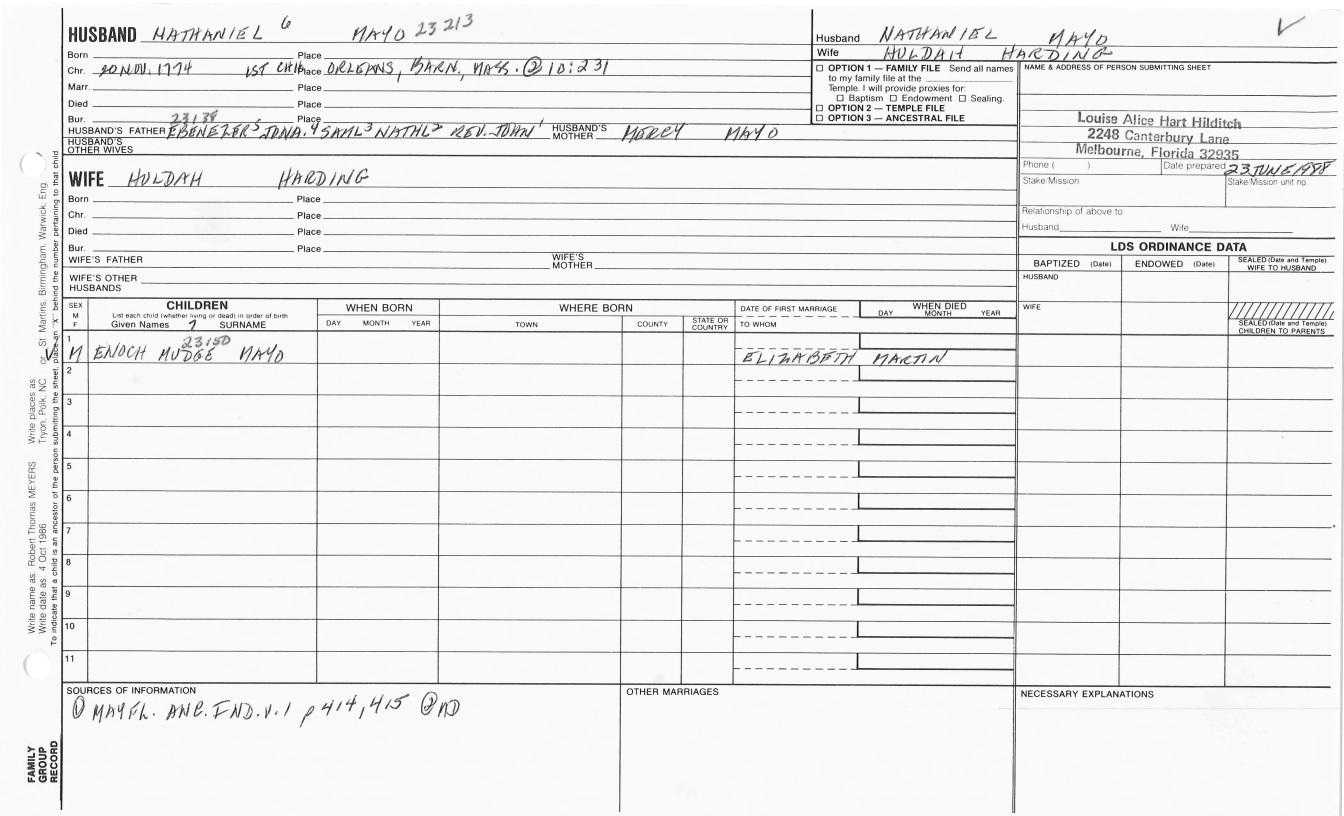 HUSBAND NATHANIEL 6 MAYO 23213
Born Place
Chr. 20 NOV. 1774 1ST CHI Place ORLEANS, BARN, MASS. ② 10:231
Marr. Place
Died Place
Bur. 23138 Place
HUSBAND'S FATHER EBENEZER5 JONA.4 SAML3 NATHL2 REV. JOHN1 HUSBAND'S MOTHER MERCY MAYO
HUSBAND'S OTHER WIVES
Husband NATHANIEL MAYO
Wife HULDAH HARDING
☐ OPTION 1 — FAMILY FILE Send all names
to my family file at the
Temple. I will provide proxies for:
☐ Baptism ☐ Endowment ☐ Sealing.
☐ OPTION 2 — TEMPLE FILE
☐ OPTION 3 — ANCESTRAL FILE
NAME & ADDRESS OF PERSON SUBMITTING SHEET
Louise Alice Hart Hilditch
2248 Canterbury Lane
Melbourne, Florida 32935
Phone ( ) Date prepared 23 JUNE 1988
Stake/Mission Stake/Mission unit no.
Relationship of above to
Husband Wife
WIFE HULDAH HARDING
Born Place
Chr. Place
Died Place
Bur. Place
WIFE'S FATHER WIFE'S MOTHER
WIFE'S OTHER HUSBANDS
LDS ORDINANCE DATA
BAPTIZED (Date) ENDOWED (Date) SEALED (Date and Temple) WIFE TO HUSBAND
HUSBAND
WIFE
SEALED (Date and Temple) CHILDREN TO PARENTS
SEX M F
CHILDREN
List each child (whether living or dead) in order of birth
Given Names 7 SURNAME
WHEN BORN
DAY MONTH YEAR
WHERE BORN
TOWN COUNTY STATE OR COUNTRY
DATE OF FIRST MARRIAGE
TO WHOM
WHEN DIED
DAY MONTH YEAR
1 23150
M ENOCH MUDGE MAYO ELIZABETH MARTIN
2
3
4
5
6
7
8
9
10
11
SOURCES OF INFORMATION
① MAYFL. ANC. IND. V. 1 p 414, 415 ②
OTHER MARRIAGES
NECESSARY EXPLANATIONS
Write name as: Robert Thomas MEYERS Write places as: Tryon, Polk, NC or St. Martins, Birmingham, Warwick, Eng.
Write date as: 4 Oct 1986
To indicate that a child is an ancestor of the person submitting the sheet, place an "x" behind the number pertaining to that child.
FAMILY
GROUP
RECORD